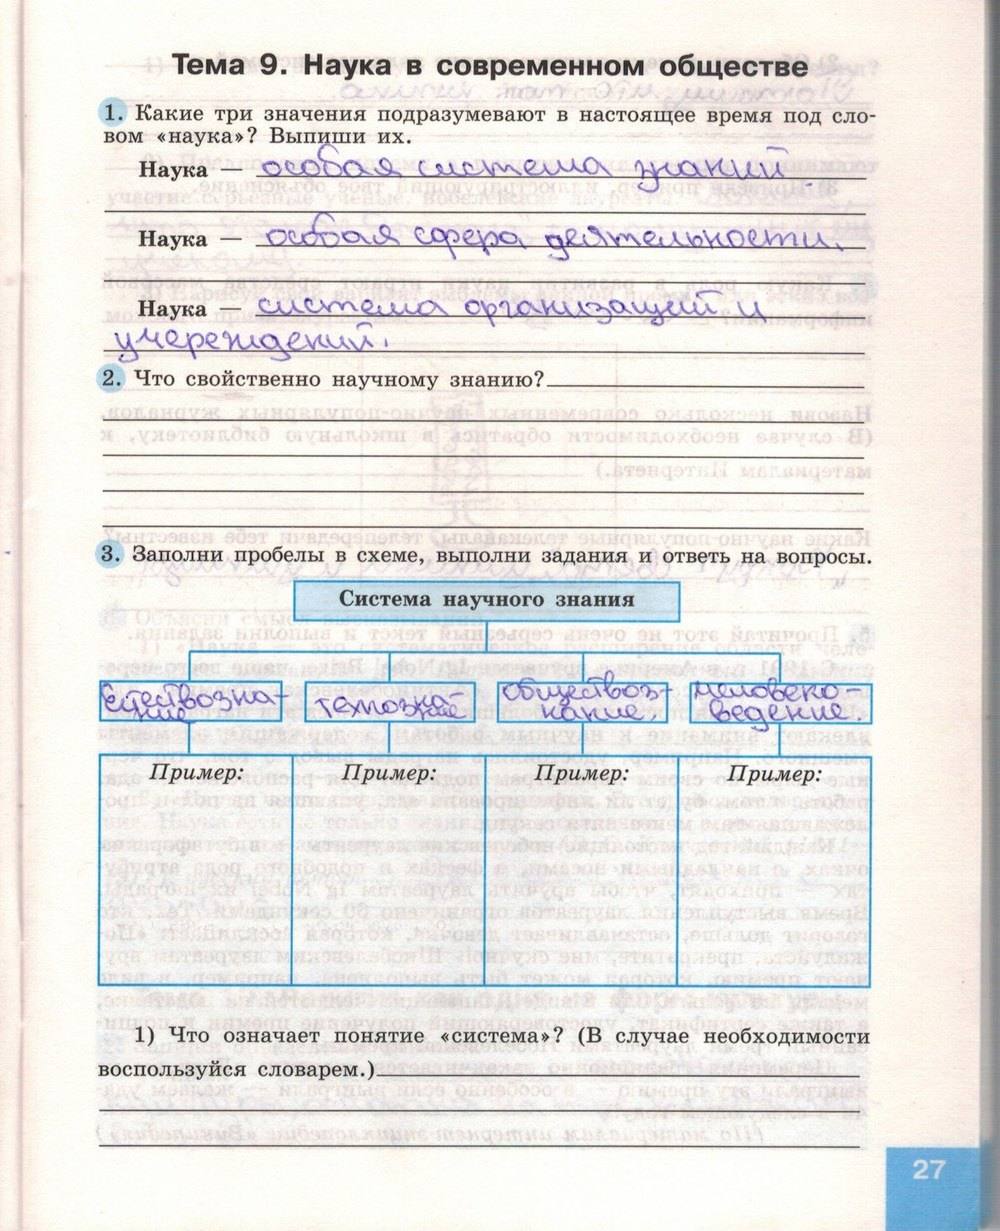 Тема 9. Наука в современном обществе
1. Какие три значения подразумевают в настоящее время под сло-
вом «наука»? Выпиши их.
Наука — особая система знаний.
Наука — особая сфера деятельности.
Наука — система организаций и
учереждений.
2. Что свойственно научному знанию?
3. Заполни пробелы в схеме, выполни задания и ответь на вопросы.
Система научного знания
Естествозна-
ние
технозна-
ние
обществоз-
нание.
человеко-
ведение.
Пример:
Пример:
Пример:
Пример:
1) Что означает понятие «система»? (В случае необходимости
воспользуйся словарем.)
27